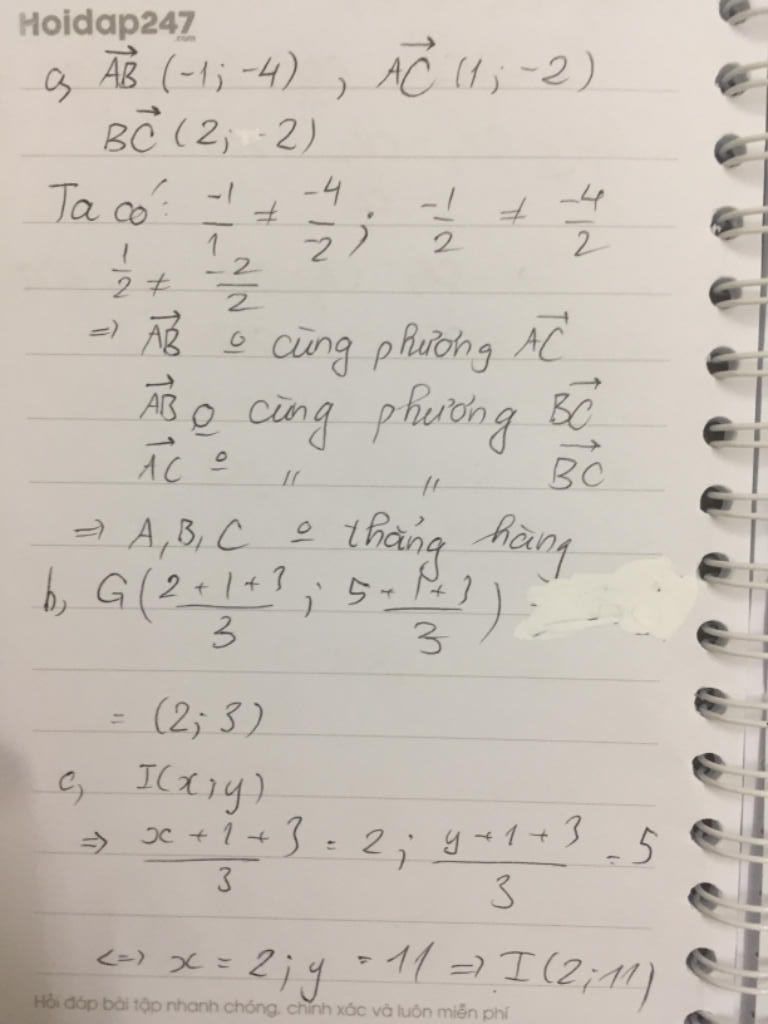 Hoidap247
.com
a, AB→ (-1; -4) , AC→ (1; -2)
BC→ (2; 2)
Ta có: -1/1 ≠ -4/-2; -1/2 ≠ -4/2
1/2 ≠ -2/2
=> AB→ o̲ cùng phương AC→
AB→ o̲ cùng phương BC→
AC→ o̲ " " BC→
=> A, B, C o̲ thẳng hàng
b, G(2+1+3/3 ; 5+1+3/3)
= (2; 3)
c, I(x; y)
=> x+1+3/3 = 2; y+1+3/3 = 5
<=> x = 2; y = 11 => I(2; 11)
Hỏi đáp bài tập nhanh chóng, chính xác và luôn miễn phí